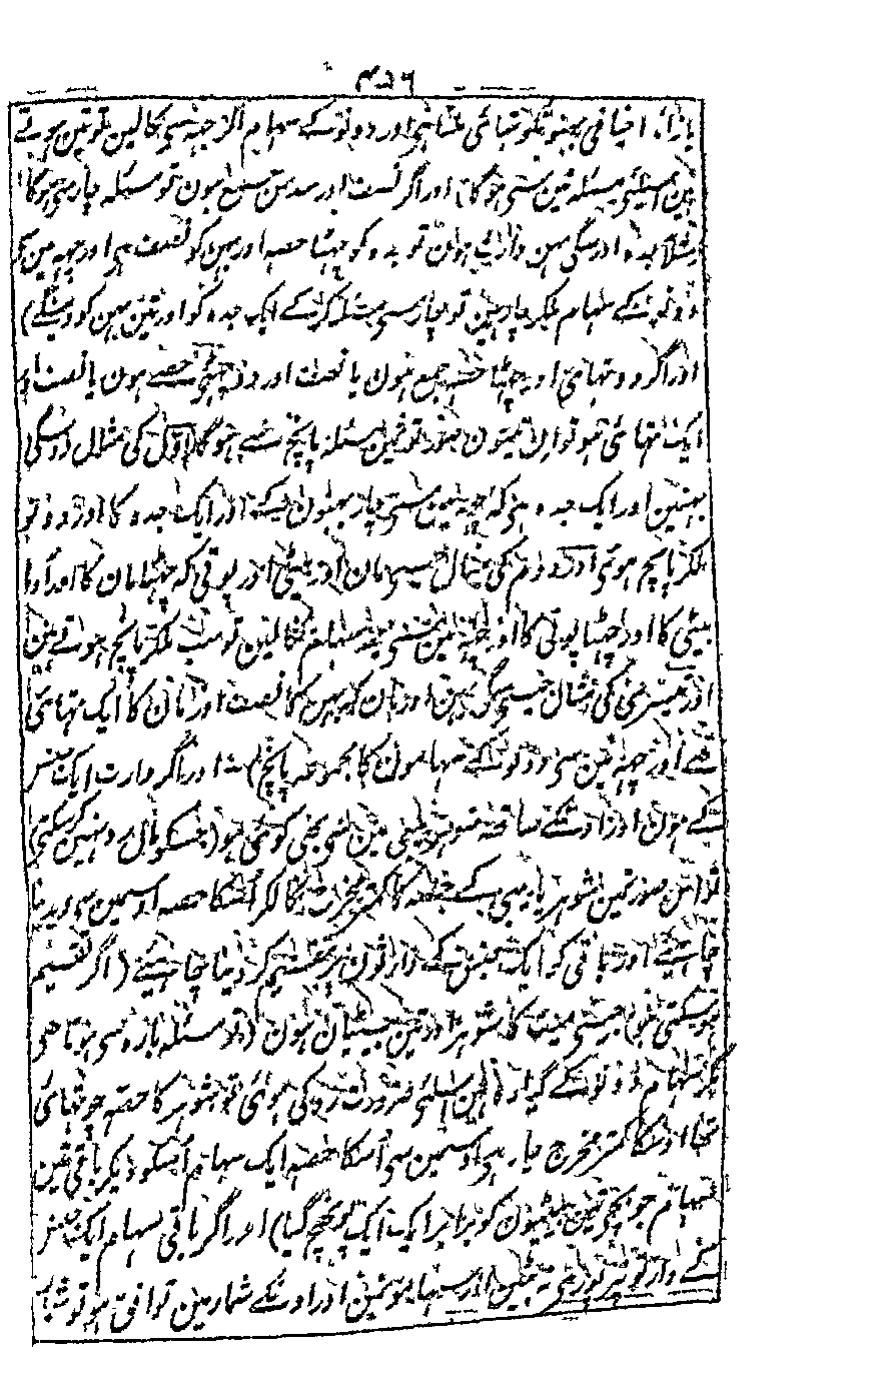 ۴۵۶
اخیافی بہنونکو تہائی ملتا ہی اور دونونکے سہام اگر چہہ مین سی نکالین تو تین ہوتے
ہین اسلیئی مسئلہ تین سی ہوگا) اور اگر نصف اور سدس جمع ہون تو مسئلہ چار سی ہوگا
مثلاً جدہ اور سگی بہن وارث ہون تو جدہ کو چہٹا حصہ اور بہن کو نصف ہی اور چہہ مین سی
دونونکے سہام ملکر چار ہین تو چار سی مسئلہ کرکے ایک جدہ کو اور تین بہن کو دینگے)
اور اگر دو تہائی اور چہٹا حصہ جمع ہون یا نصف اور دو چہٹے حصے ہون یا نصف اور
ایک تہائی ہو تو ان تینون صورتونمین مسئلہ پانچ سے ہوگا (اول کی مثال دو سگی
بہنین اور ایک جدہ ہی کہ چہہ مین سی چار بہنون کے اور ایک جدہ کا اور دونو
ملکر پانچ ہوئی اور دوم کی مثال جیسی مان اور بیٹی اور پوتی کہ چہٹا مان کا اور آدہا
بیٹی کا اور چہٹا پوتی کا اور چہہ مین سی جو سہام نکالین تو سب ملکر پانچ ہوتے ہین
اور تیسری کی مثال جیسی سگی بہن اور مان کہ بہن کا نصف اور مان کا ایک تہائی
ہے اور چہہ مین سی دونونکے سہامون کا مجموعہ پانچ) اور اگر وارث ایک جنس
کے ہون اور اونکے ساتھ شوہر یا بی بی مین سی بہی کوئی ہو (جسکو مال رد نہین کرسکتی)
تو اس صورتمین شوہر یا بی بی کے حصہ کا کمتر مخرج نکالکر اُسکا حصہ اوسمین سی دیدینا
چاہیئے اور باقی کو ایک جنس کے وارثون پر تقسیم کر دینا چاہیئے (اگر تقسیم
ہوسکتی ہو) جیسی میت کا شوہر اور تین بیٹیان ہون (تو مسئلہ بارہ سی ہوتا ہی
مگر سہام دونونکے گیارہ ہین اسلیئی ضرورت رد کی ہوئی تو شوہر کا حصہ چوتہائی
تہا اوسکا کمتر مخرج چار ہی اوسمین سی اُسکا حصہ ایک سہام اُسکو دیکر باقی تین
سہام جو بچی تین بیٹیون کو برابر ایک ایک پہنچ گیا) اور اگر باقی سہام ایک جنس
کے وارثونپر پوری نہ بٹین اور سہام مین اور اونکے شمار مین توافق ہو تو